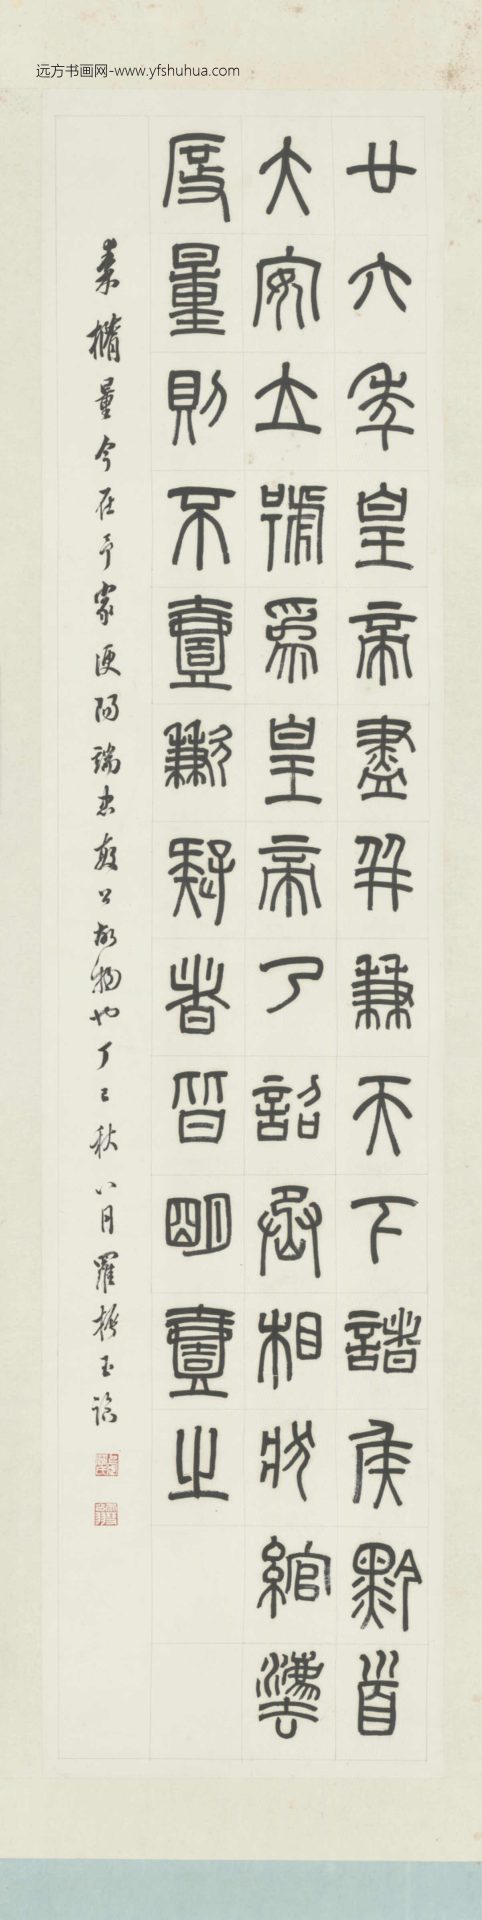 远方书画网-www.yfshuhua.com
廿六年皇帝盡并兼天下諸侯黔首
大安立號為皇帝乃詔丞相狀綰灋
度量則不壹歉疑者皆明壹之
秦橢量今在予家浭陽端忠敏公故物也丁巳秋八月羅振玉臨